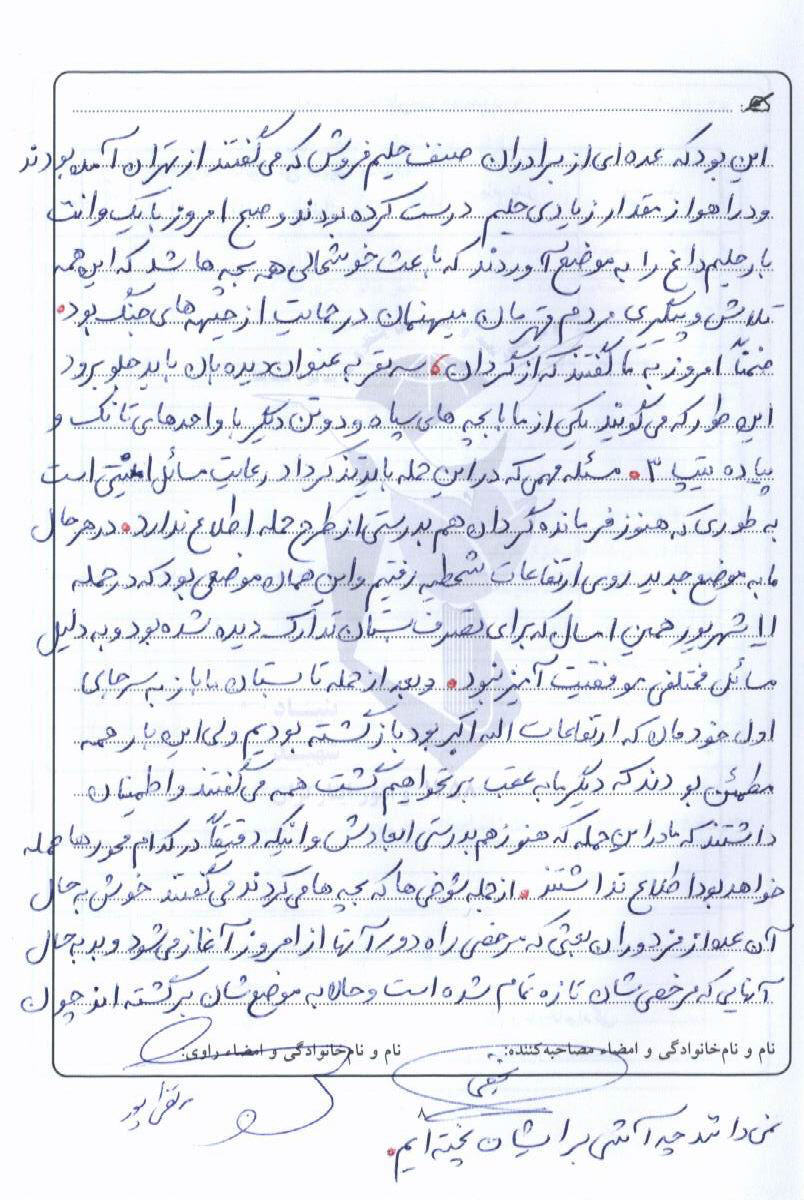 این بود که عده‌ای از برادران صنف حلیم فروش که می گفتند از تهران آمده بودند
و در اهواز مقدار زیادی حلیم درست کرده بودند و صبح امروز با یک وانت
بار حلیم داغ را به موضع آوردند که باعث خوشحالی همه بچه ها شد که این همه
تلاش و پیگیری مردم قهرمان میهنمان در حمایت از جبهه های جنگ بود.
ضمناً امروز به ما گفتند که از گردان، سه نفر به عنوان دیده بان باید جلو برود
این طور که می گویند یکی از ما با بچه های سپاه و دو تن دیگر با واحدهای تانک و
پیاده تیپ ۳. مسئله مهمی که در این حمله باید ذکر کرد رعایت مسائل امنیتی است
به طوری که هنوز فرمانده گردان هم بدرستی از طرح حمله اطلاع ندارد. در هر حال
ما به موضع جدید روی ارتفاعات شحیطیه رفتیم و این همان موضعی بود که در حمله
۱۱ شهریور همین امسال که برای تصرف بستان تدارک دیده شده بود و به دلیل
مسائل مختلفی موفقیت آمیز نبود. و بعد از حمله تا بستان ما باز به سرجای
اول خودمان که ارتفاعات الله اکبر بود بازگشته بودیم ولی این بار همه
مطمئن بودند که دیگر ما به عقب برنخواهیم گشت همه می گفتند و اطمینان
داشتند که ما در این حمله که هنوز هم بدرستی ابعادش و اینکه دقیقاً در کدام محورها حمله
خواهد بود اطلاع نداشتند. از جمله شوخی ها که بچه ها می کردند می گفتند خوش به حال
آن عده از مزدوران بعثی که مرخصی راه دور آنها از امروز آغاز می شود و بد به حال
آنهایی که مرخصی شان تازه تمام شده است و حالا به موضع شان برگشته اند چون
نام و نام‌خانوادگی و امضاء مصاحبه‌کننده: نام و نام‌خانوادگی و امضاء راوی:
نمی دانند چه آشی برایشان پخته ایم.
۸